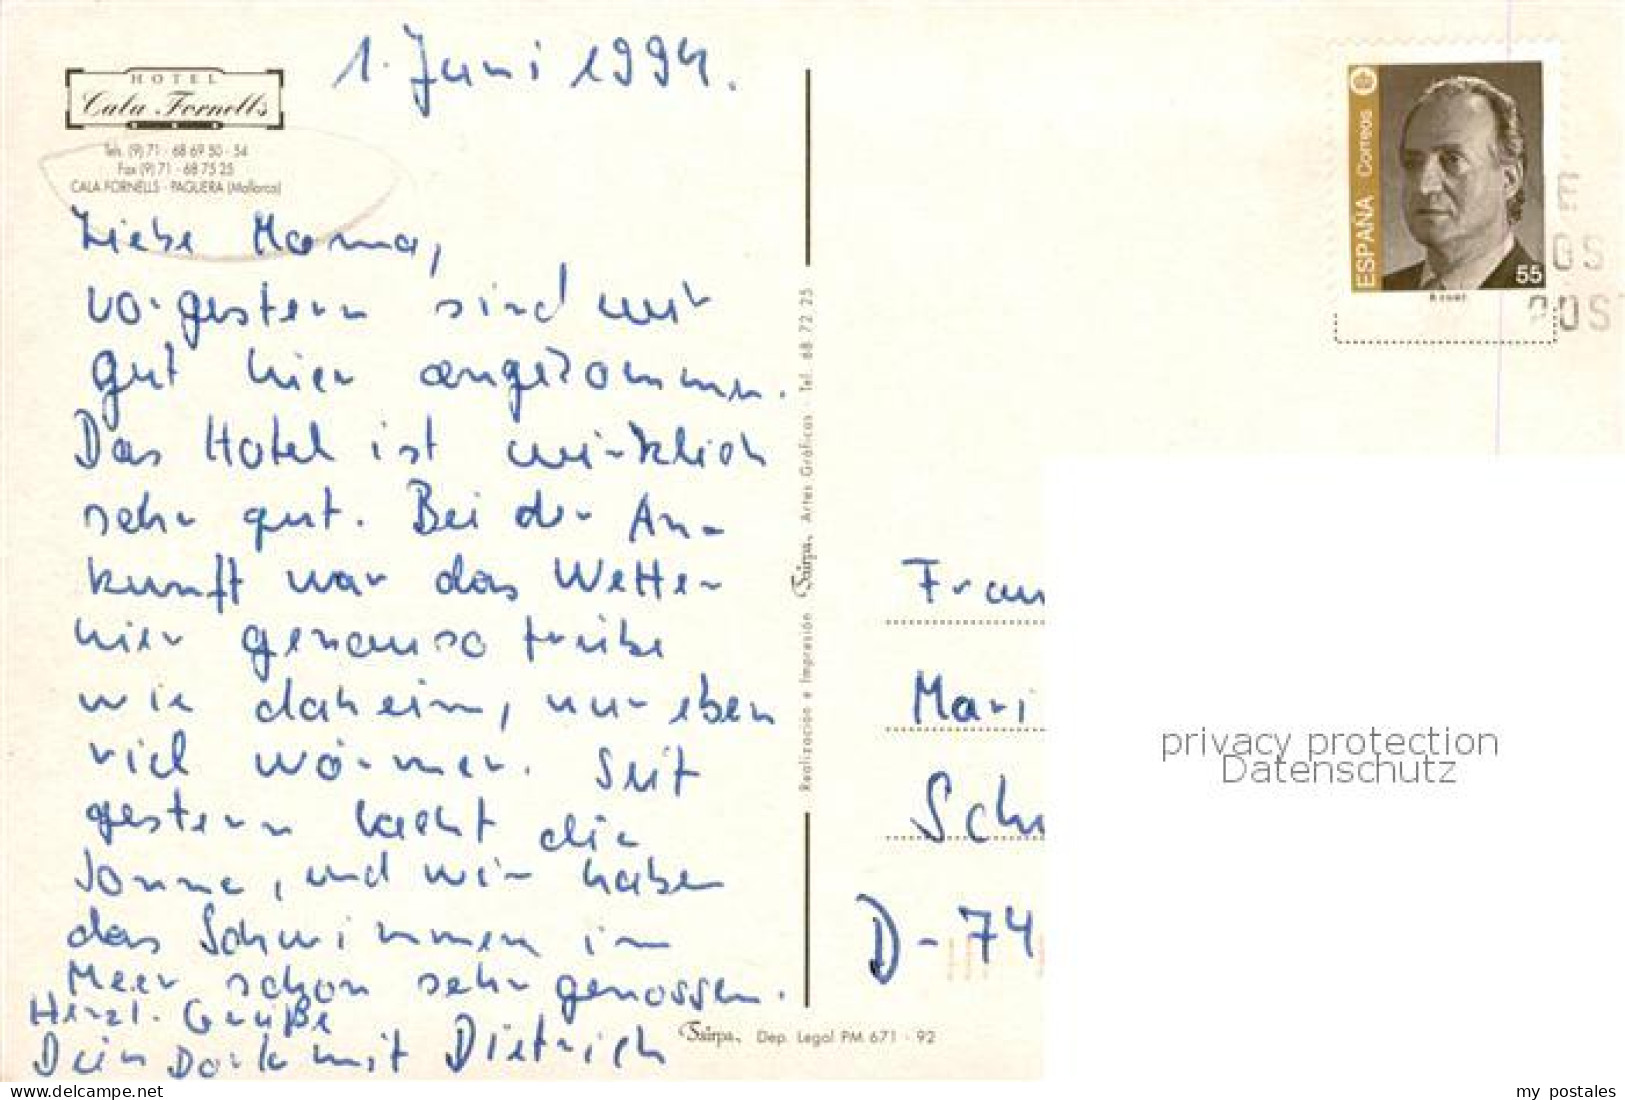 HOTEL
Cala Fornells
Tels. (9) 71 - 68 69 50 - 54
Fax (9) 71 - 68 75 25
CALA FORNELLS - PAGUERA (Mallorca)
1. Juni 1994.
Liebe Mama,
vorgestern sind wir
gut hier angekommen.
Das Hotel ist wirklich
sehr gut. Bei der An-
kunft war das Wetter
hier genauso trübe
wie daheim, nur eben
viel wärmer. Seit
gestern lacht die
Sonne, und wir haben
das Schwimmen im
Meer schon sehr genossen.
Herzl. Grüße
Dein mit Dietrich
Realización e Impresión Sairpa, Artes Gráficas - Tel. 68 72 25
Sairpa, Dep. Legal PM 671 - 92
ESPAÑA Correos
55
OS
POS
Frau
Mari
Sch
D-74
privacy protection
Datenschutz
my postales